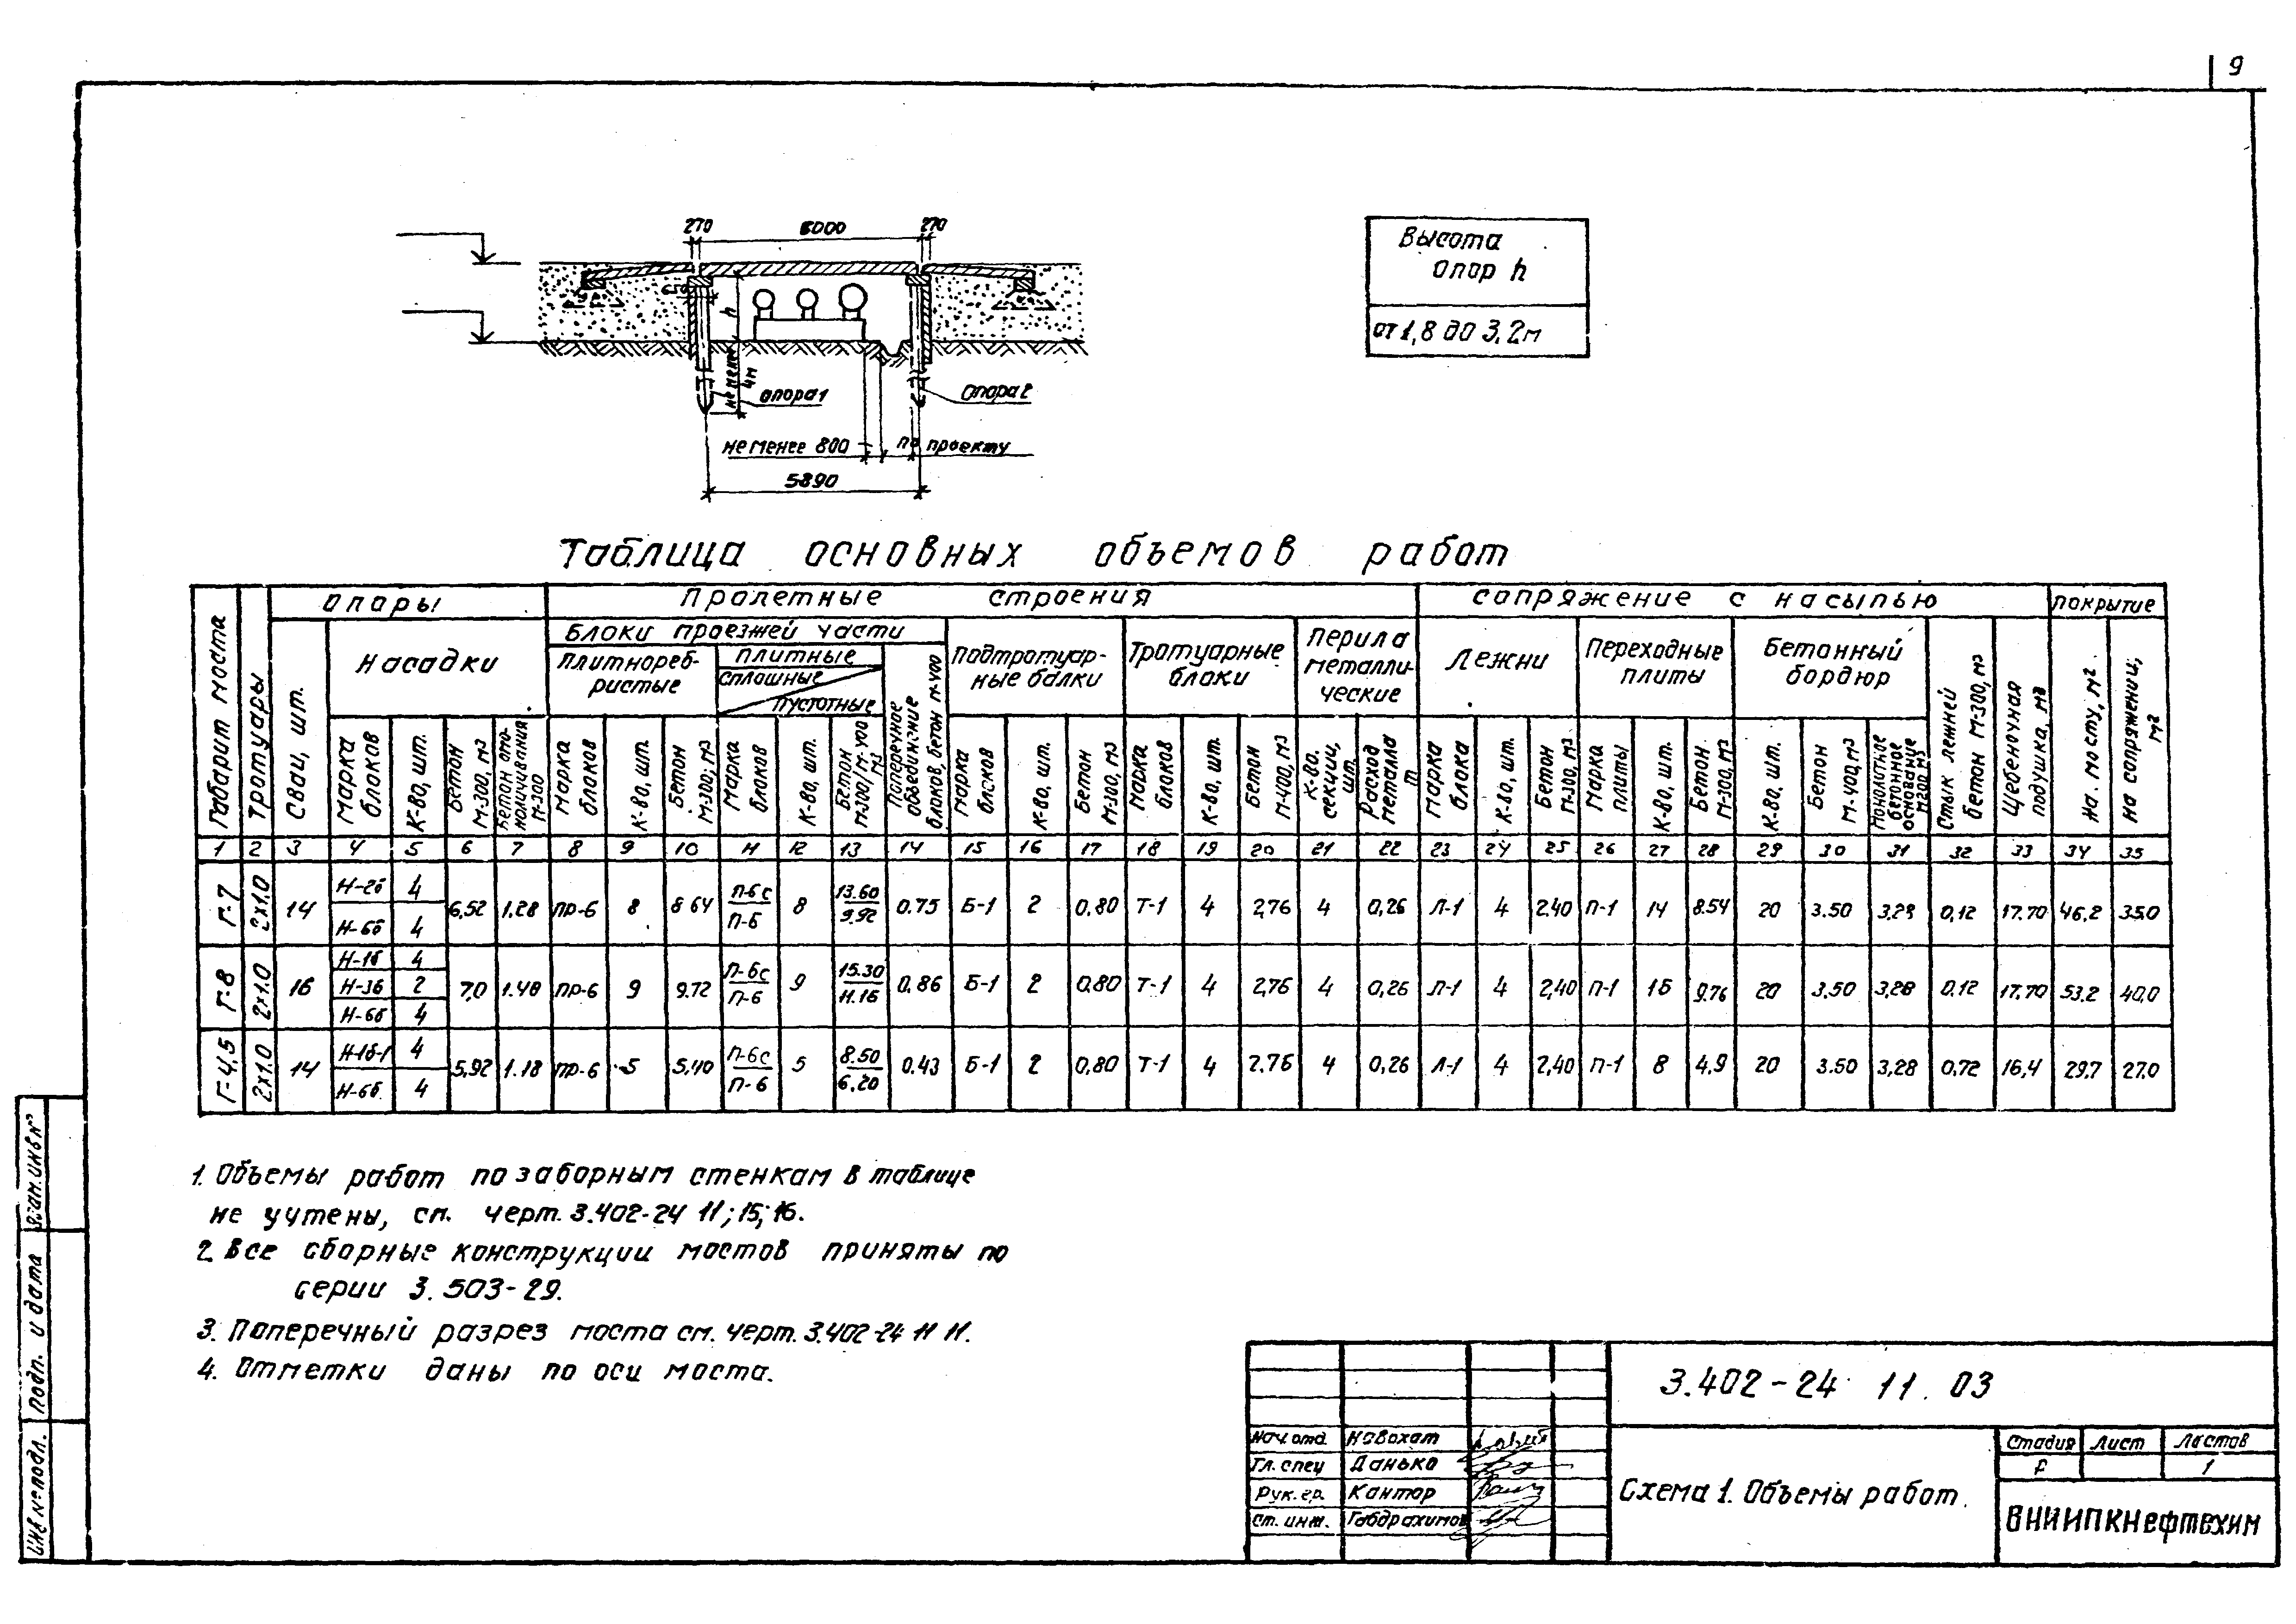 9
270 6000 270
650
h
не менее 4м
опора 1
опора 2
не менее 800
по проекту
5890
Высота
опор h
от 1,8 до 3,2м
Таблица основных объемов работ
Габарит моста
Тротуары
Опоры
Пролетные строения
Сопряжение с насыпью
Покрытие
Сваи, шт.
Насадки
Блоки проезжей части
Плитнореб-
ристые
Плитные
сплошные
пустотные
Поперечное объединение блоков, бетон М-400
Подтротуар-
ные балки
Тротуарные
блоки
Перила
металли-
ческие
Лежни
Переходные
плиты
Бетонный
бордюр
Стык лежней бетон М-300, м³
Щебеночная подушка, м³
На мосту, м²
На сопряжении, м²
Марка блоков
К-во, шт.
Бетон М-300, м³
Бетон омоноличивания М-300
Марка блоков
К-во, шт.
Бетон М-300, м³
Марка блоков
К-во, шт.
Бетон М-300/М-400 м³
Марка блоков
К-во, шт.
Бетон М-300, м³
Марка блоков
К-во, шт.
Бетон М-400, м³
К-во. секции, шт
Расход металла т
Марка блока
К-во, шт.
Бетон М-300, м³
Марка плиты
К-во, шт.
Бетон М-300, м³
К-во, шт.
Бетон М-400, м³
Монолитное бетонное основание М200 м³
1 2 3 4 5 6 7 8 9 10 11 12 13 14 15 16 17 18 19 20 21 22 23 24 25 26 27 28 29 30 31 32 33 34 35
Г-7 2х1.0 14 Н-2б 4 Н-6б 4 6,52 1.28 ПР-6 8 8 64 П-6с П-6 8 13.60 9.92 0.75 Б-1 2 0,80 Т-1 4 2,76 4 0,26 Л-1 4 2.40 П-1 14 8.54 20 3.50 3,28 0,12 17.70 46,2 35.0
Г-8 2х1.0 16 Н-1б 4 Н-3б 2 Н-6б 4 7,0 1.48 ПР-6 9 9.72 П-6с П-6 9 15.30 11.16 0.86 Б-1 2 0.80 Т-1 4 2,76 4 0,26 Л-1 4 2,40 П-1 16 9.76 20 3.50 3,28 0.12 17.70 53.2 40,0
Г-4,5 2х1.0 14 Н-1б-1 4 Н-6б 4 5,92 1.18 ПР-6 5 5,40 П-6с П-6 5 8.50 6.20 0.43 Б-1 2 0,80 Т-1 4 2.76 4 0,26 Л-1 4 2,40 П-1 8 4,9 20 3.50 3,28 0,72 16,4 29.7 27.0
1. Объемы работ по заборным стенкам в таблице
не учтены, см. черт. 3.402-24 11; 15; 16.
2. Все сборные конструкции мостов приняты по
серии 3.503-29.
3. Поперечный разрез моста см. черт. 3.402-24 11 11.
4. Отметки даны по оси моста.
Взам. инв №
Подп. и дата
Инв № подл.
3.402-24 11.03
Нач. отд. Новохат
Гл. спец Данько
Рук. гр. Кантор
Ст. инж. Габдрахимов
Схема 1. Объемы работ.
Стадия Лист Листов
Р 1
ВНИИПКНефтехим